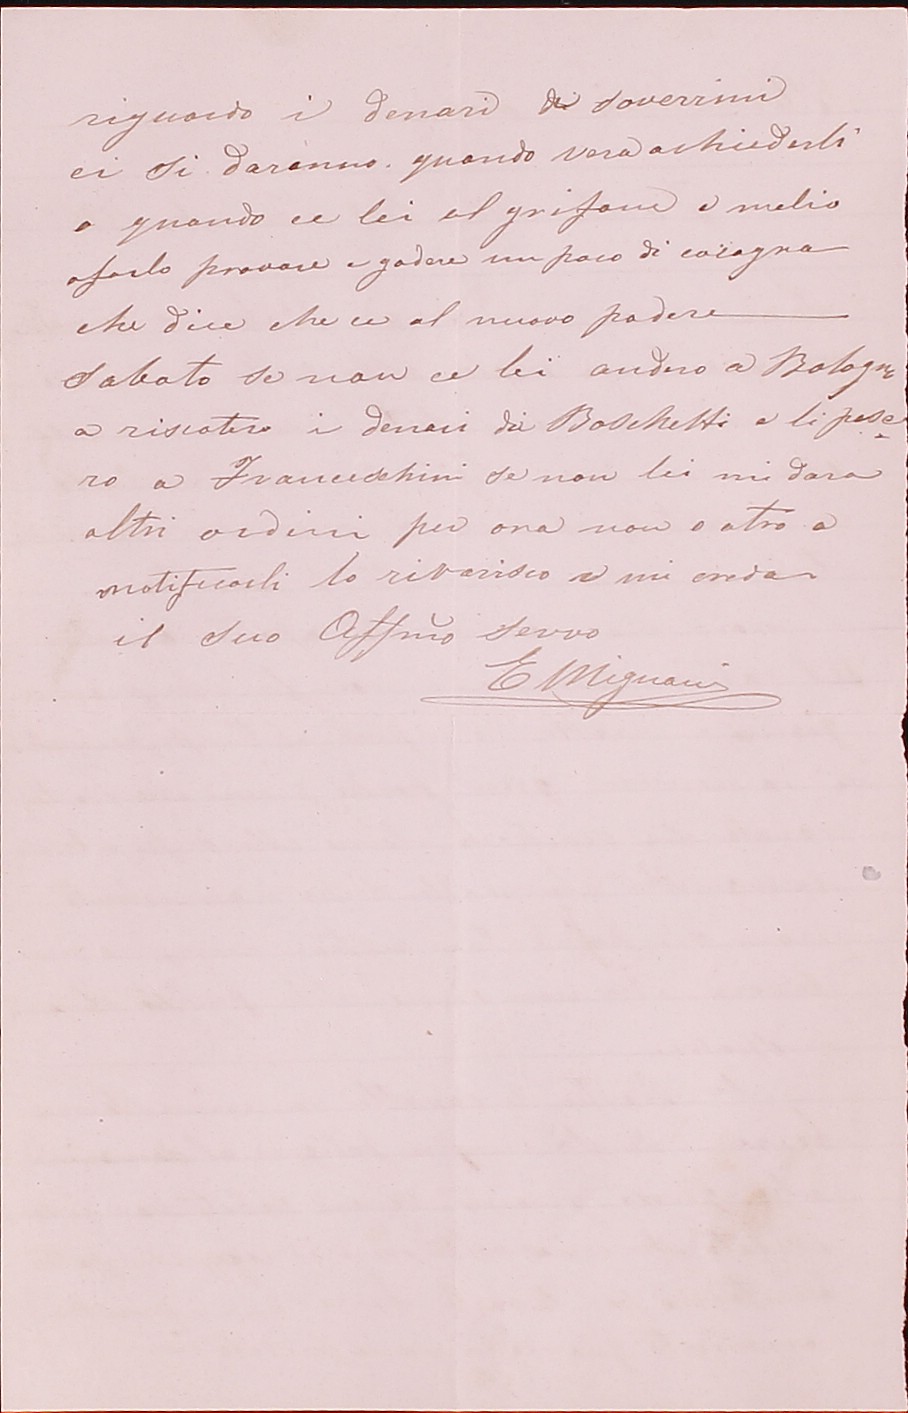 riguardo i denari di soverrini
ei si daranno. quando vera achiederli
o quando ce lei al grifone e melio
afarlo provare e godere un poco di cocagna
che dice che ce al nuovo podere
Sabato se non ce lei andero a Bologn
a riscotere i denari di Boschetti e li pase
ro a Franceschini se non lei mi dara
altri ordini per ora non o atro a
notificarli lo riverisco e mi creda
il suo Affmo servo
E Mignani